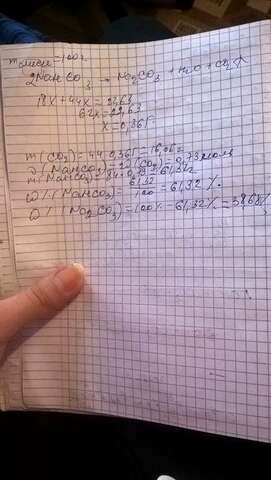 m смеси = 100 г.
2NaHCO3 → Na2CO3 + H2O + CO2↑
18x + 44x = 22,63
62x = 22,63
x = 0,365
m(CO2) = 44 · 0,365 = 16,06 г.
ν(NaHCO3) = 2ν(CO2) = 0,73 моль
m(NaHCO3) = 84 · 0,73 = 61,32 г.
ω%(NaHCO3) = 61,32 / 100 = 61,32 %.
ω%(Na2CO3) = 100% - 61,32% = 38,68%